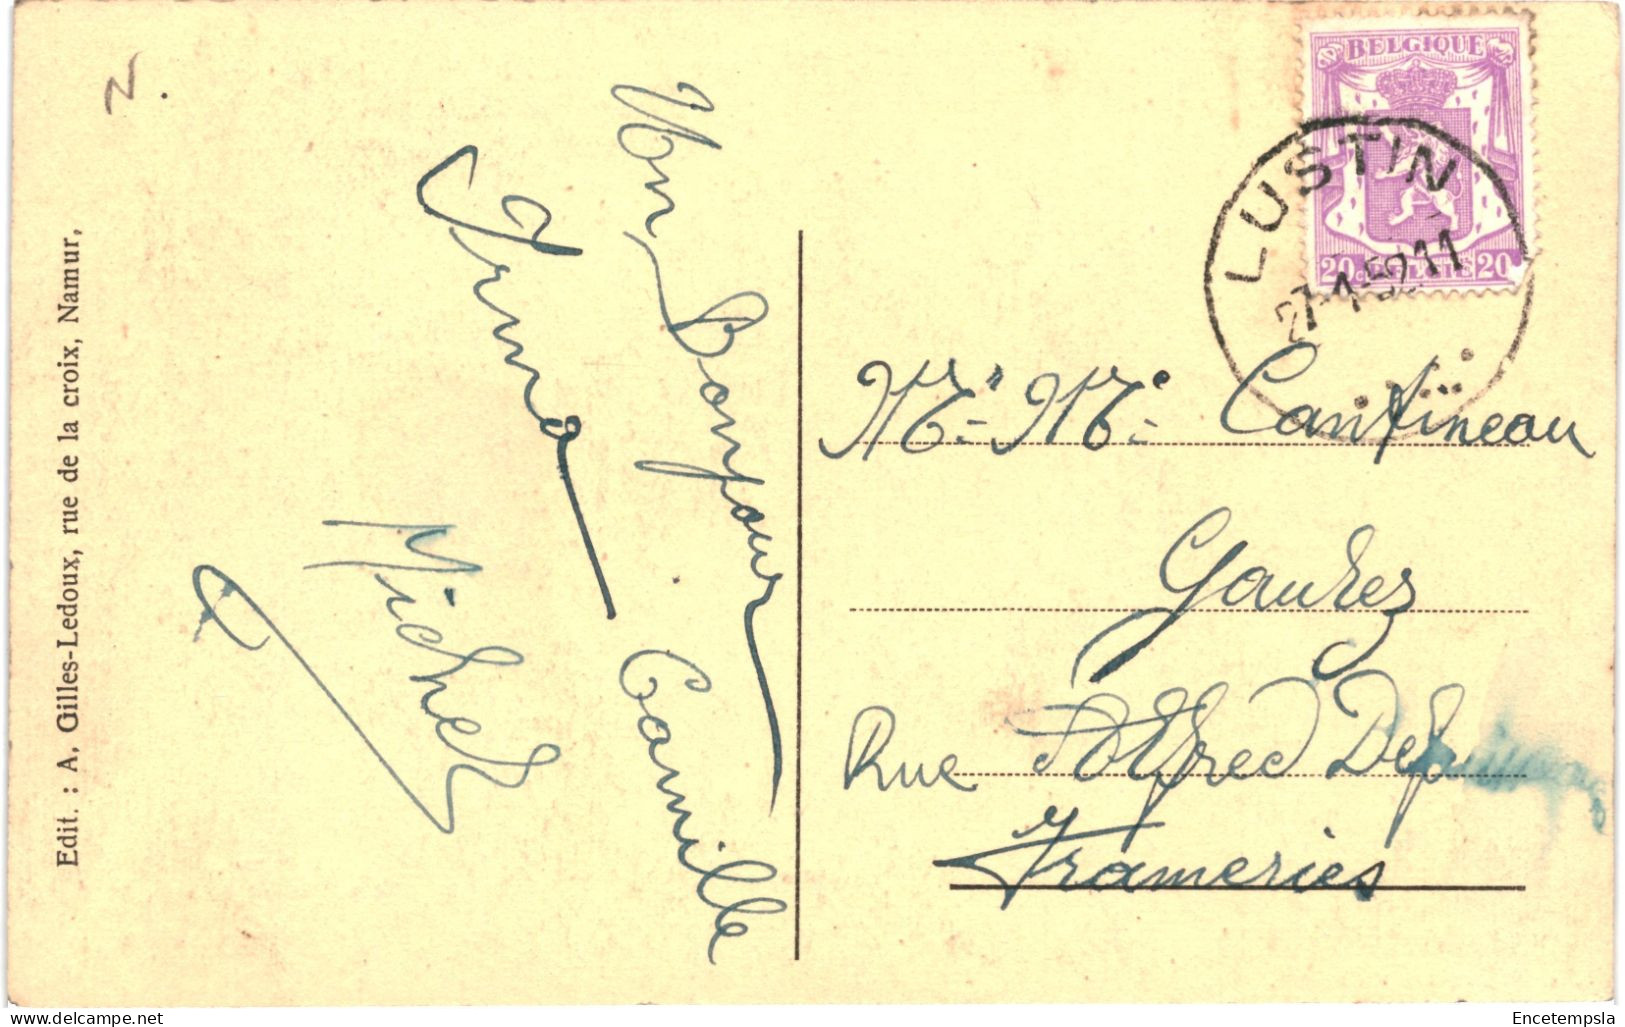 Un Bonjour
Irma Camille
Michel
Edit. : A. Gilles-Ledoux, rue de la croix, Namur,
BELGIQUE
20c BELGIE 20
LUSTIN
27-1-52 11
Mr. Me. Cantineau
Gauhez
Rue Alfred
Frameries
Encetempsla